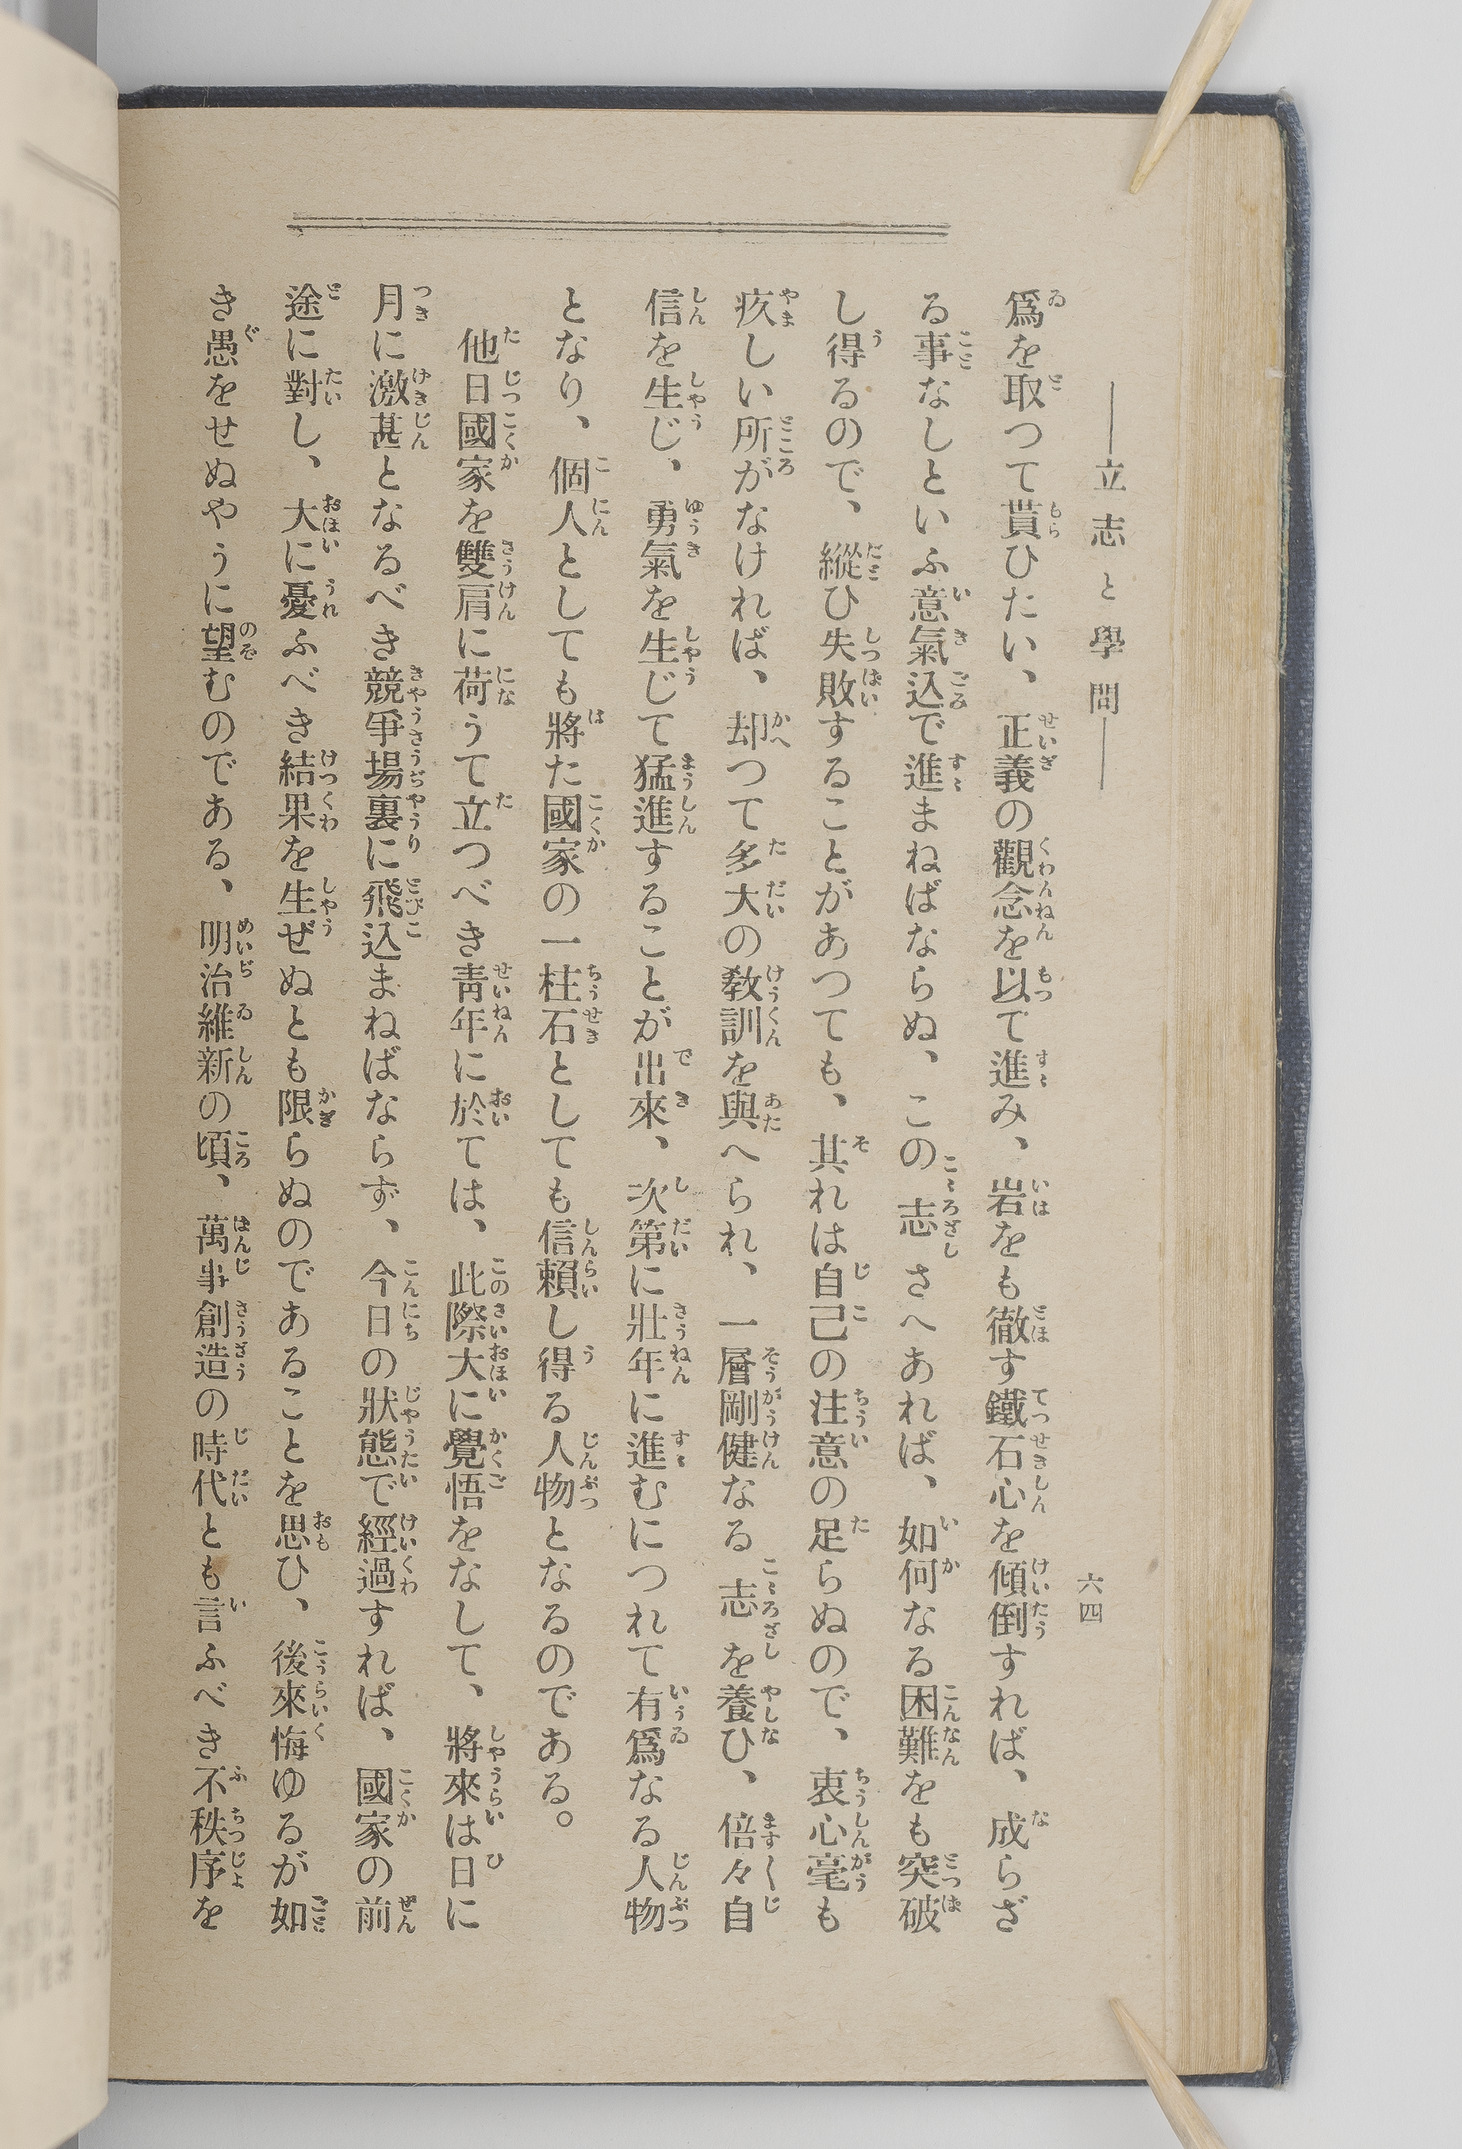 ―立志と學問―
六四
爲を取つて貰ひたい、正義の觀念を以て進み、岩をも徹す鐵石心を傾倒すれば、成らざ
る事なしといふ意氣込で進まねばならぬ、この志さへあれば、如何なる困難をも突破
し得るので、縱ひ失敗することがあつても、其れは自己の注意の足らぬので、衷心毫も
疚しい所がなければ、却つて多大の敎訓を與へられ、一層剛健なる志を養ひ、倍々自
信を生じ、勇氣を生じて猛進することが出來、次第に壯年に進むにつれて有爲なる人物
となり、個人としても將た國家の一柱石としても信賴し得る人物となるのである。
他日國家を雙肩に荷うて立つべき靑年に於ては、此際大に覺悟をなして、將來は日に
月に激甚となるべき競爭場裏に飛込まねばならず、今日の狀態で經過すれば、國家の前
途に對し、大に憂ふべき結果を生ぜぬとも限らぬのであることを思ひ、後來悔ゆるが如
き愚をせぬやうに望むのである、明治維新の頃、萬事創造の時代とも言ふべき不秩序を